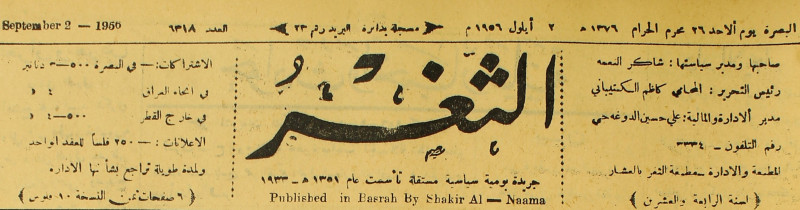 البصرة يوم الاحد ٢٦ محرم الحرام ١٣٧٦ هـ ٢ أيلول ١٩٥٦ م مسجلة بدائرة البريد رقم ٢٣ العدد ٦٣١٨ September 2 - 1956
صاحبها ومدير سياستها : شاكر النعمه
رئيس التحرير : المحامي كاظم الكنتيباني
مدير الادارة والمالية : علي حسين الدوغه جي
رقم التلفون - ٣٣٣٤
المطبعة والادارة - مطبعة الثغر بالعشار
( لسنة الرابعة والعشرين )
الثغر
جريدة يومية سياسية مستقلة تأسست عام ١٣٥١ هـ - ١٩٣٣
Published in Basrah By Shakir Al - Naama
الاشتراكات :- في البصرة ٥٠٠-٣ دنانير
في انحاء العراق ٤ د
في خارج القطر ٥٠٠-٤ د
الاعلانات :- ٢٥٠ فلساً للعقد لواحد
ولمدة طويلة تراجع بشأنها الادارة
( ٦ صفحات ثمن النسخة ١٠ فلوس )